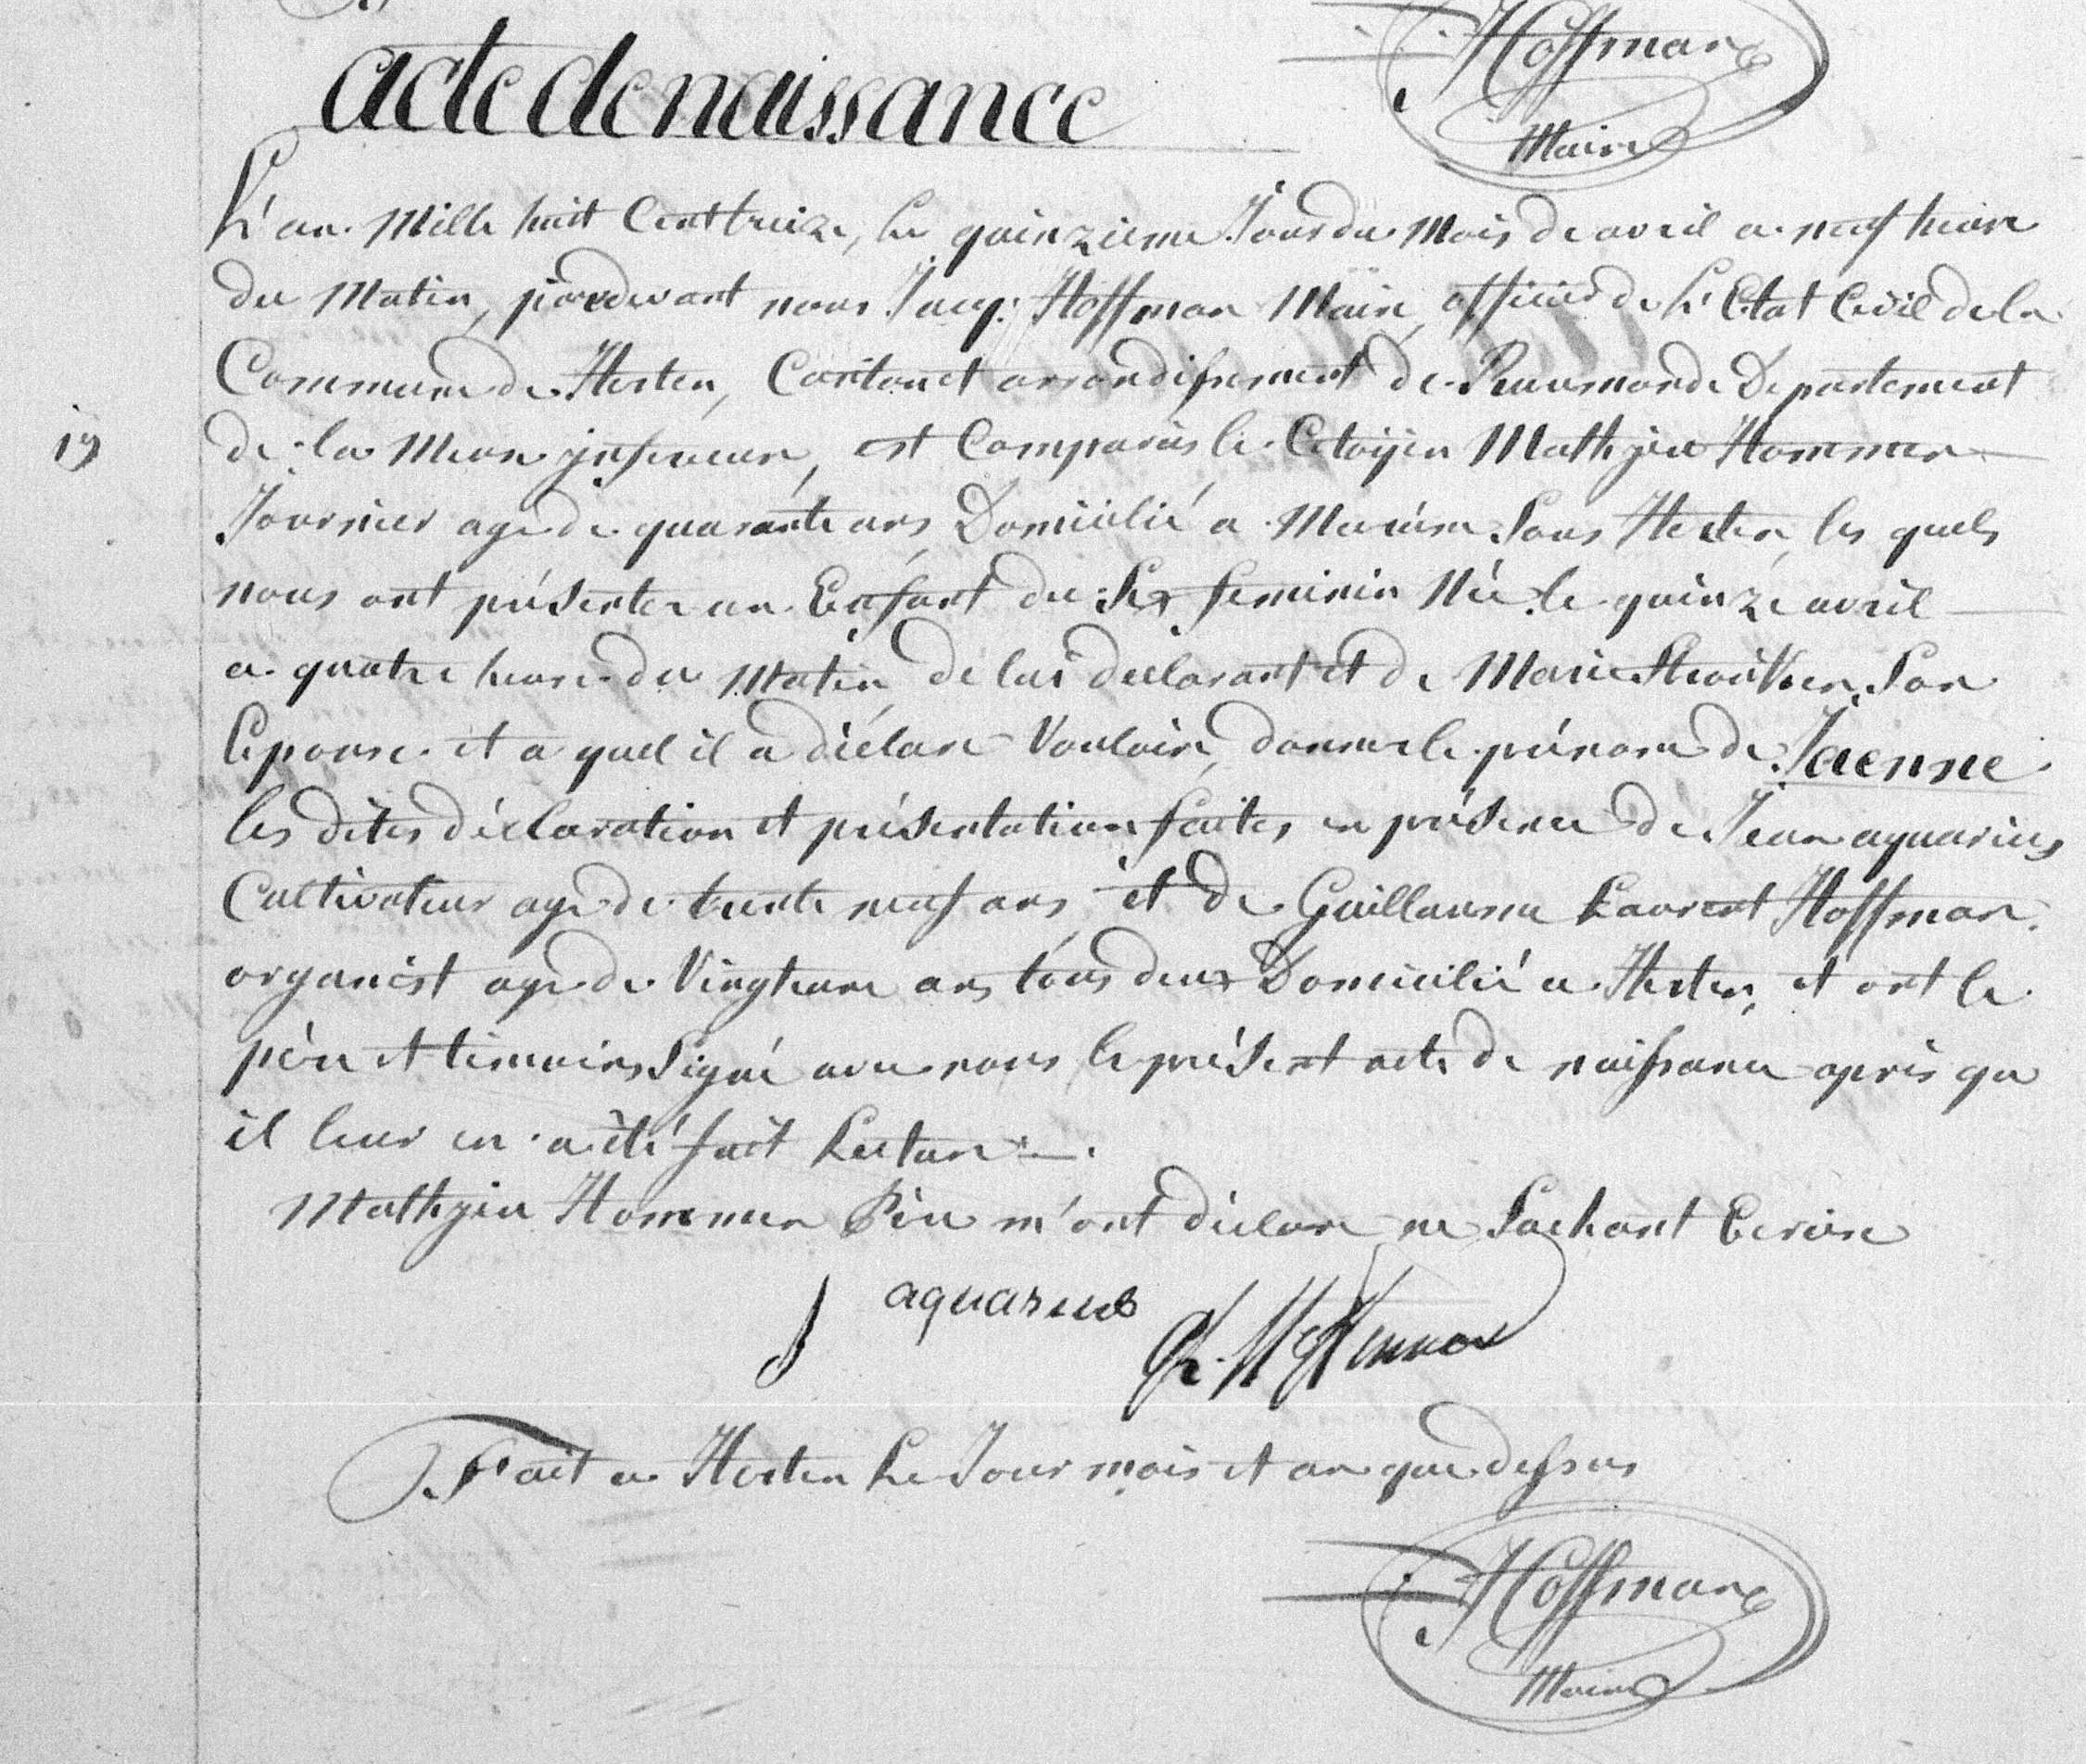 Hoffman
Maire
acte de naissance
L'an Mille huit Cent treize, Le quinzieme Jour du Mois de avril a neuf heure
du Matin, pardevant nous Jacq: Hoffman Maire, officier de L'Etat Civil de la
Commune de Herten, Canton et arrondissement de Ruremonde Departement
19
de la Meuse inferieure, est Comparus le Citoÿen Mathieu Hommen
Journier agé de quarante ans Domicilié a Merum Sous Herten, les quels
nous ont présenter un Enfant du Sex feminin Née le quinze avril
a quatre heure du Matin, de lui declarant et de Marie Son
Epouse et a quel il a déclare Vouloire donner le prénom de Jaenne
les dites déclaration et présentation faites en présence de Jean aquarius
Cultivateur agé de trente neuf ans, et de Guillaume Laurent Hoffman
organist agé de ans tous deux Domicilié a Herten, et ont le
père et temoins Signé avec nous le présent acte de naissance après qu
il leur en a été fait Lecture.
Mathieu Hommen Père m'ont déclare ne Sachant Ecrire
J aquarius
G. L. Hoffman
Fait a Herten Le Jour mois et an que dessus
Hoffman
Maire